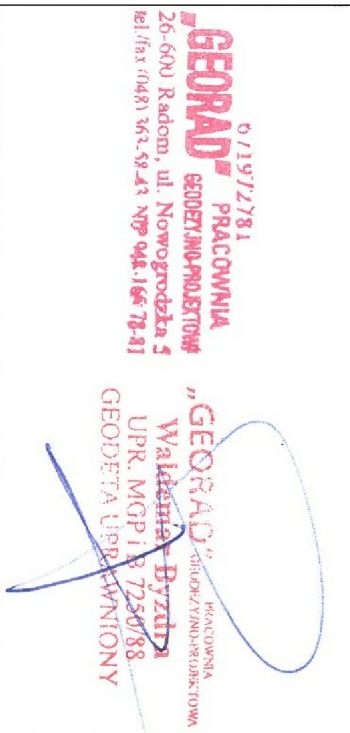 671972781
PRACOWNIA
„GEORAD” GEODEZYJNO-PROJEKTOWA
26-600 Radom, ul. Nowogrodzka 5
tel./fax (048) 363-58-43 NIP 948-166-78-81
PRACOWNIA
„GEORAD” GEODEZYJNO-PROJEKTOWA
Waldemar
UPR. MGPiB 7250/88
GEODETA UPRAWNIONY